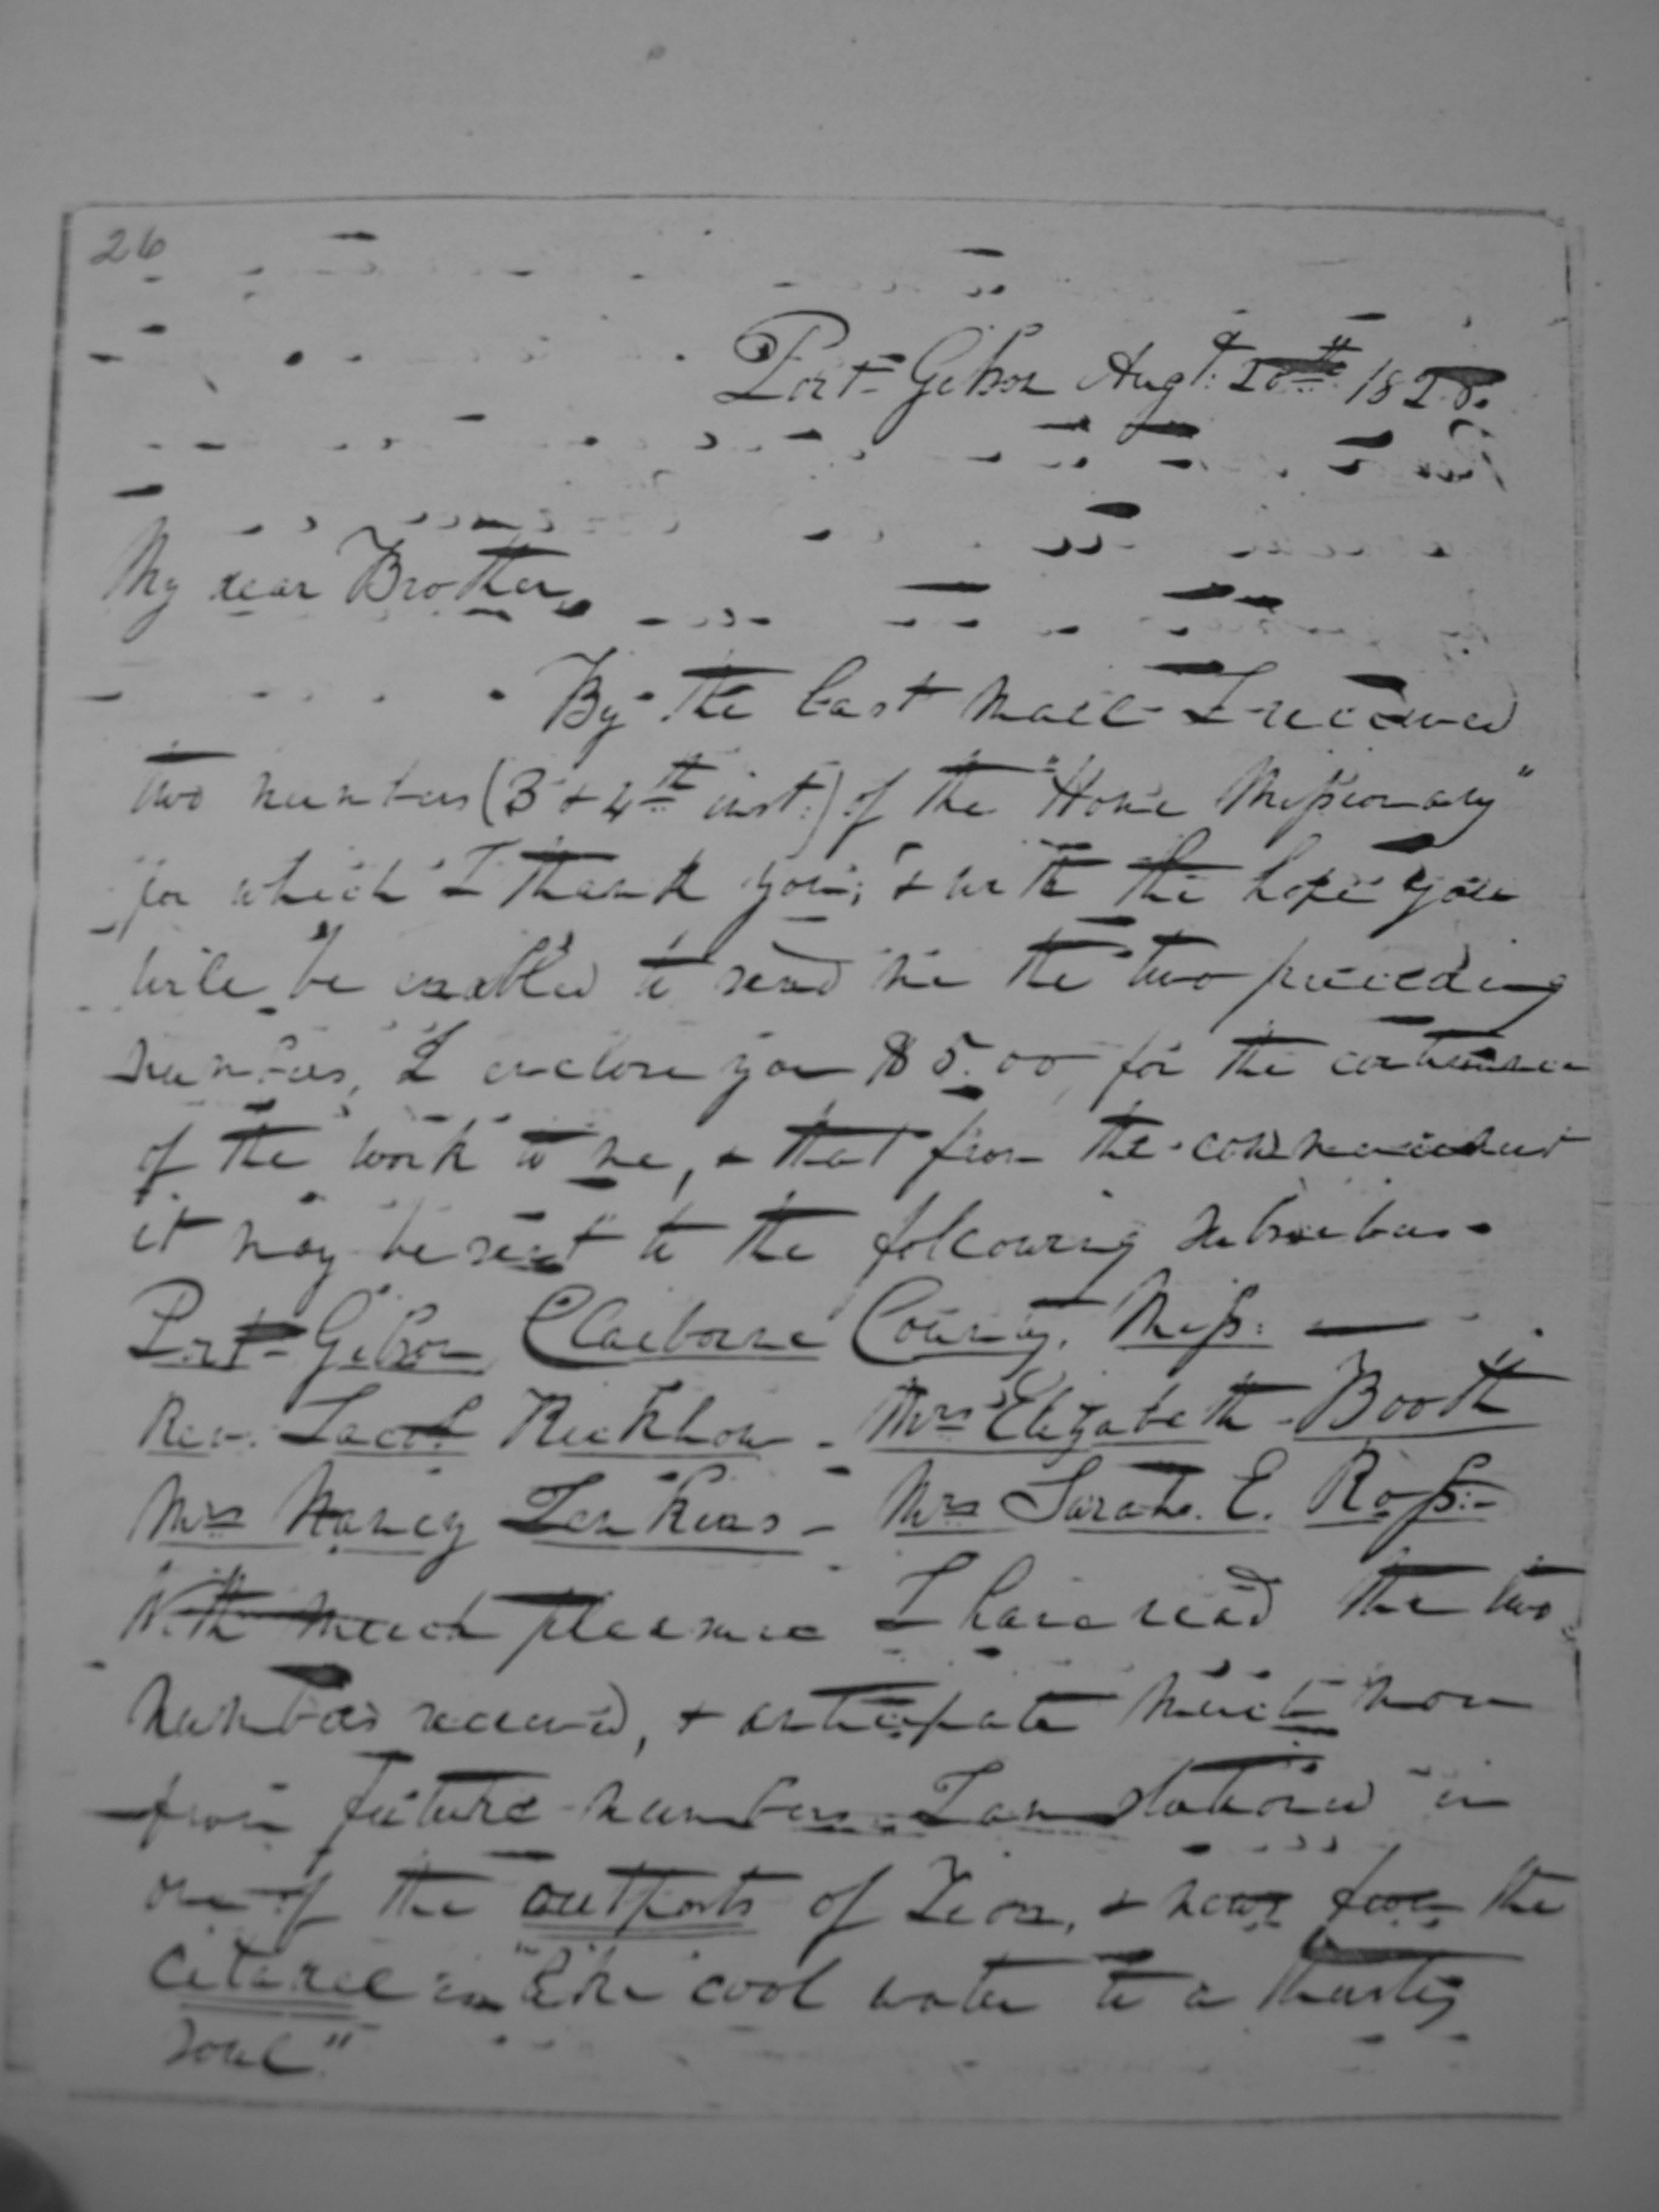 26
Port Gibson Augt. 20th 1828.
My dear Brother,
By the last Mail I received
two numbers (3 & 4th inst.) of the "Home Missionary"
for which I thank you; & with the hope you
will be enabled to send me the two preceding
numbers, I enclose you $5.00 for the continuance
of the work to me, & that from the commencement
it may be sent to the following subscribers.
Port Gibson Claiborne County, Miss: —
Rev. Jacob Rickhow - Mrs Elizabeth Booth
Mrs Nancy Jenkins - Mrs Sarah. E. Ross.-
With much pleasure I have read the two
numbers received, & anticipate much more
from future numbers. I am stationed in
one of the outposts of Zion, & news from the
citadel is "like cool water to a thirsty
soul."